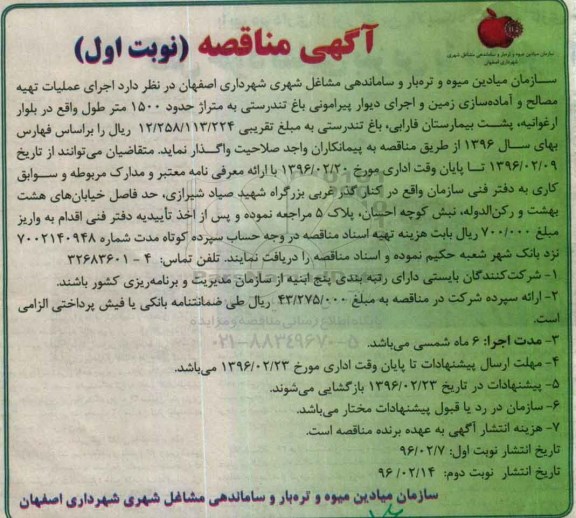 آگهی مناقصه (نوبت اول)
سازمان میادین میوه و تره‌بار و ساماندهی مشاغل شهری
شهرداری اصفهان
سـازمان میادین میوه و تره‌بار و ساماندهی مشاغل شهری شهرداری اصفهان در نظر دارد اجرای عملیات تهیه
مصالح و آماده‌سازی زمین و اجرای دیوار پیرامونی باغ تندرستی به متراژ حدود ۱۵۰۰ متر طول واقع در بلوار
ارغوانیه، پشـت بیمارستان فارابی، باغ تندرستی به مبلغ تقریبی ۱۲/۲۵۸/۱۱۳/۲۲۴ ریال را براساس فهارس
بهای سـال ۱۳۹۶ از طریق مناقصه به پیمانکاران واجد صلاحیت واگـذار نماید. متقاضیان می‌توانند از تاریخ
۱۳۹۶/۰۲/۰۹ تـا پایان وقت اداری مورخ ۱۳۹۶/۰۲/۲۰ با ارائه معرفی نامه معتبر و مدارک مربوطه و سـوابق
کاری به دفتر فنی سازمان واقع در کنار گذر غربی بزرگراه شهید صیاد شیرازی، حد فاصل خیابان‌های هشت
بهشت و رکن‌الدوله، نبش کوچه احسان، پلاک ۵ مراجعه نموده و پس از اخذ تأییدیه دفتر فنی اقدام به واریز
مبلغ ۷۰۰/۰۰۰ ریال بابت هزینه تهیه اسناد مناقصه در وجه حساب سپرده کوتاه مدت شماره ۷۰۰۲۱۴۰۹۴۸
نزد بانک شهر شعبه حکیم نموده و اسناد مناقصه را دریافت نمایند. تلفن تماس: ۴ - ۳۲۶۸۳۶۰۱
۱- شرکت‌کنندگان بایستی دارای رتبه‌بندی پنج ابنیه از سازمان مدیریت و برنامه‌ریزی کشور باشند.
۲- ارائه سپرده شرکت در مناقصه به مبلغ ۴۳/۲۷۵/۰۰۰ ریال طی ضمانتنامه بانکی یا فیش پرداختی الزامی
است.
۳- مدت اجرا: ۶ ماه شمسی می‌باشد.
۴- مهلت ارسال پیشنهادات تا پایان وقت اداری مورخ ۱۳۹۶/۰۲/۲۳ می‌باشد.
۵- پیشنهادات در تاریخ ۱۳۹۶/۰۲/۲۳ بازگشایی می‌شوند.
۶- سازمان در رد یا قبول پیشنهادات مختار می‌باشد.
۷- هزینه انتشار آگهی به عهده برنده مناقصه است.
تاریخ انتشار نوبت اول: ۹۶/۰۲/۷
تاریخ انتشار نوبت دوم: ۹۶/۰۲/۱۴
سازمان میادین میوه و تره‌بار و ساماندهی مشاغل شهری شهرداری اصفهان